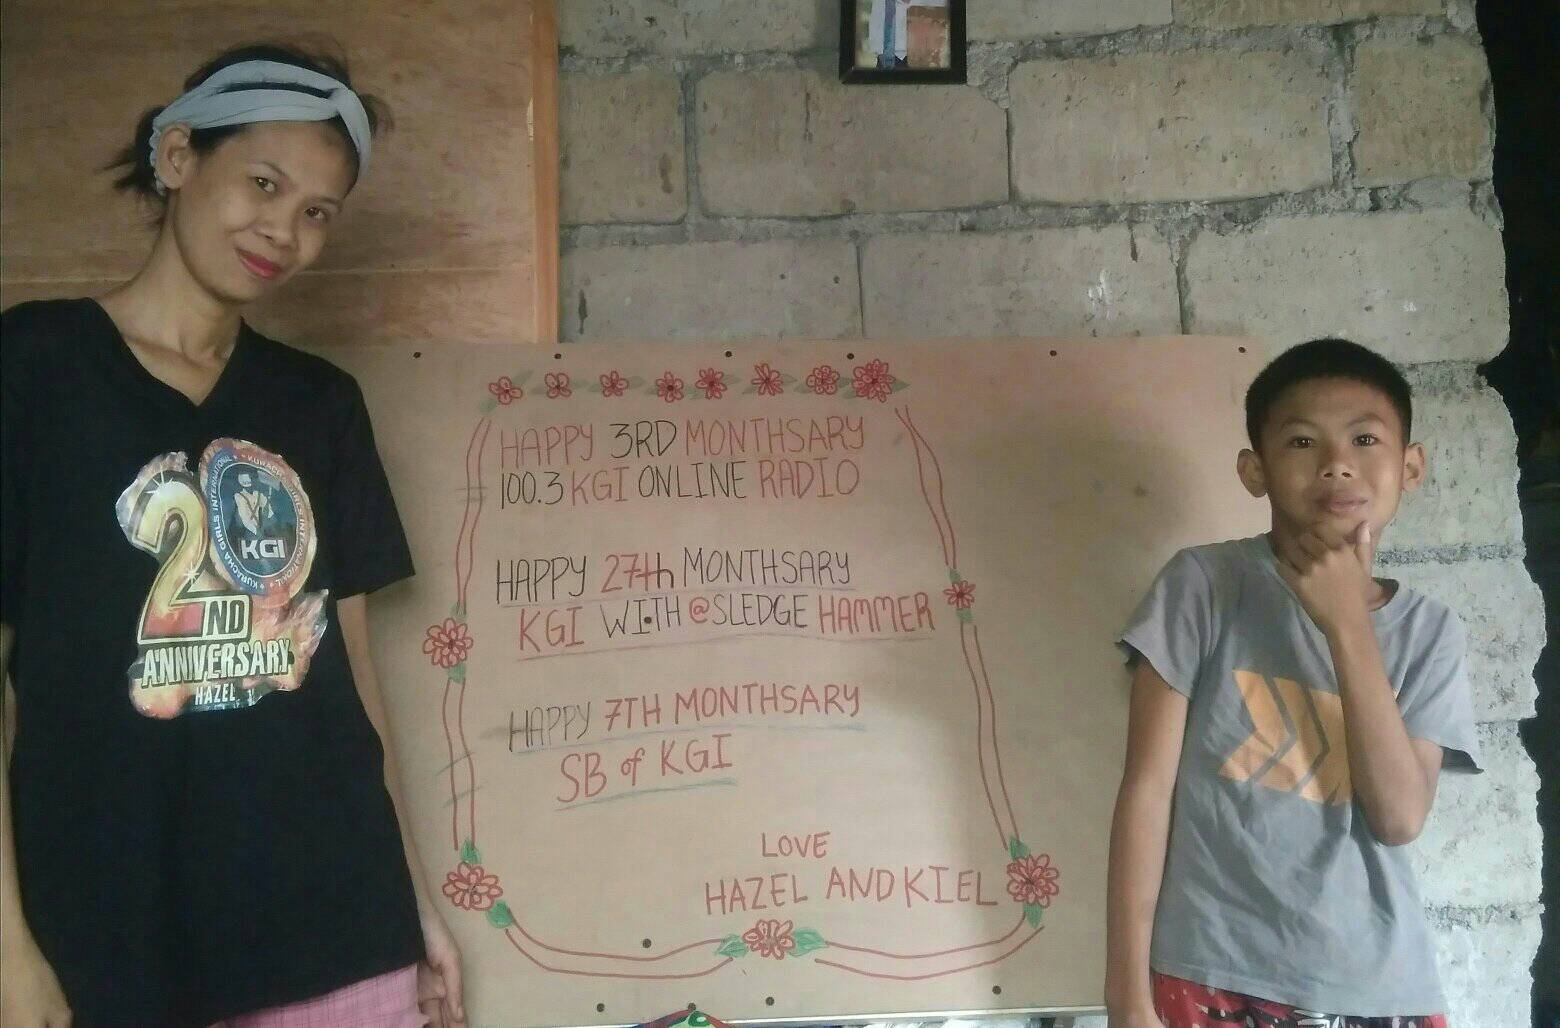 HAPPY 3RD MONTHSARY
100.3 KGI ONLINE RADIO
HAPPY 27th MONTHSARY
KGI WITH @SLEDGE HAMMER
HAPPY 7TH MONTHSARY
SB of KGI
LOVE
HAZEL AND KIEL
KURACHA GIRLS INTERNATIONAL
KGI
2ND
ANNIVERSARY
HAZEL